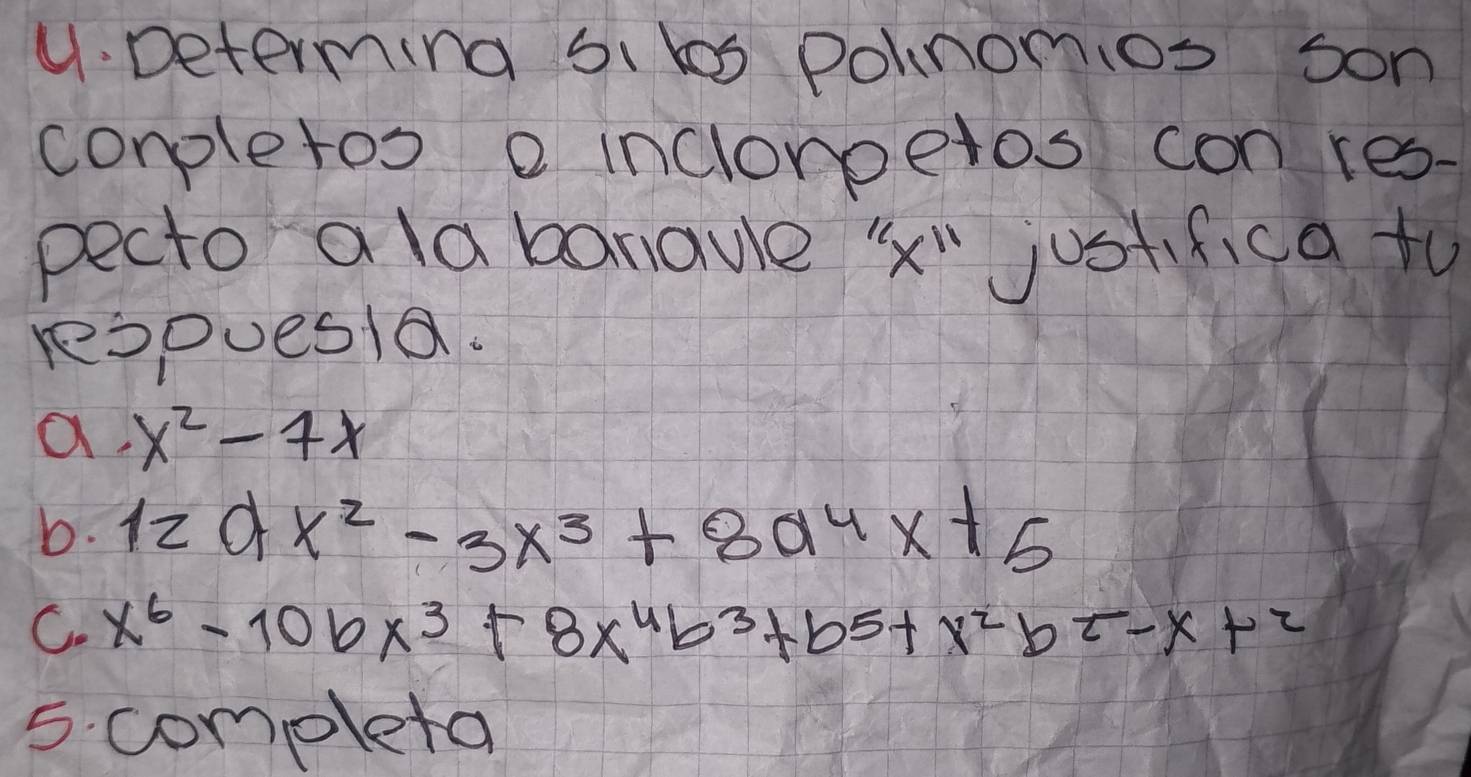 4. Determina si los polinomios son
conpletos o inclonpetos con res-
pecto a la bariavle "x" justifica tu
respuesta.
a. x² - 7x
b. 12ax² - 3x³ + 8a⁴x + 5
c. x⁶ - 10bx³ + 8x⁴b³ + b⁵ + x²b² - x + 2
5. completa